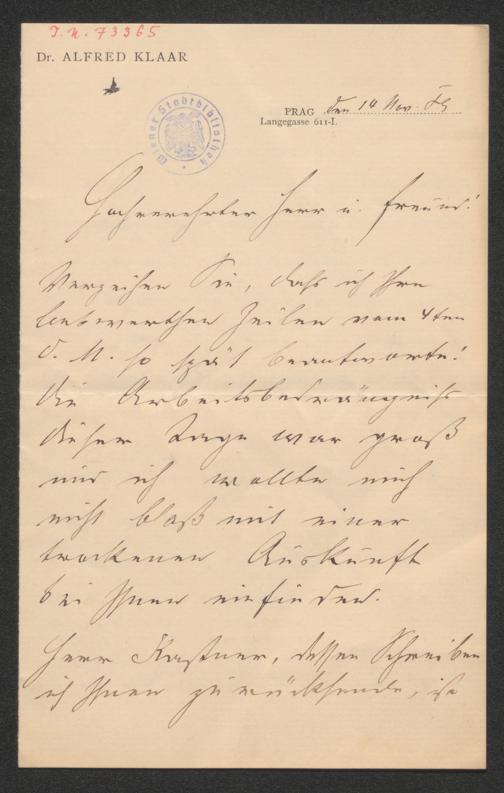 J. N. 73365
Dr. ALFRED KLAAR
Wiener Stadtbibliothek
PRAG den 14 Nov.
Langegasse 611-I.
Hochverehrter Herr u. Freund!
Verzeihen Sie, daß ich Ihre
liebwerthen Zeilen vom 4ten
d. M. so spät beantworte!
Die Arbeitsbedrängniß
dieser Tage war groß
und ich wollte mich
nicht bloß mit einer
trockenen Auskunft
bei Ihnen einfinden.
Herr Kastner, dessen Schreiben
ich Ihnen zurücksende, ist